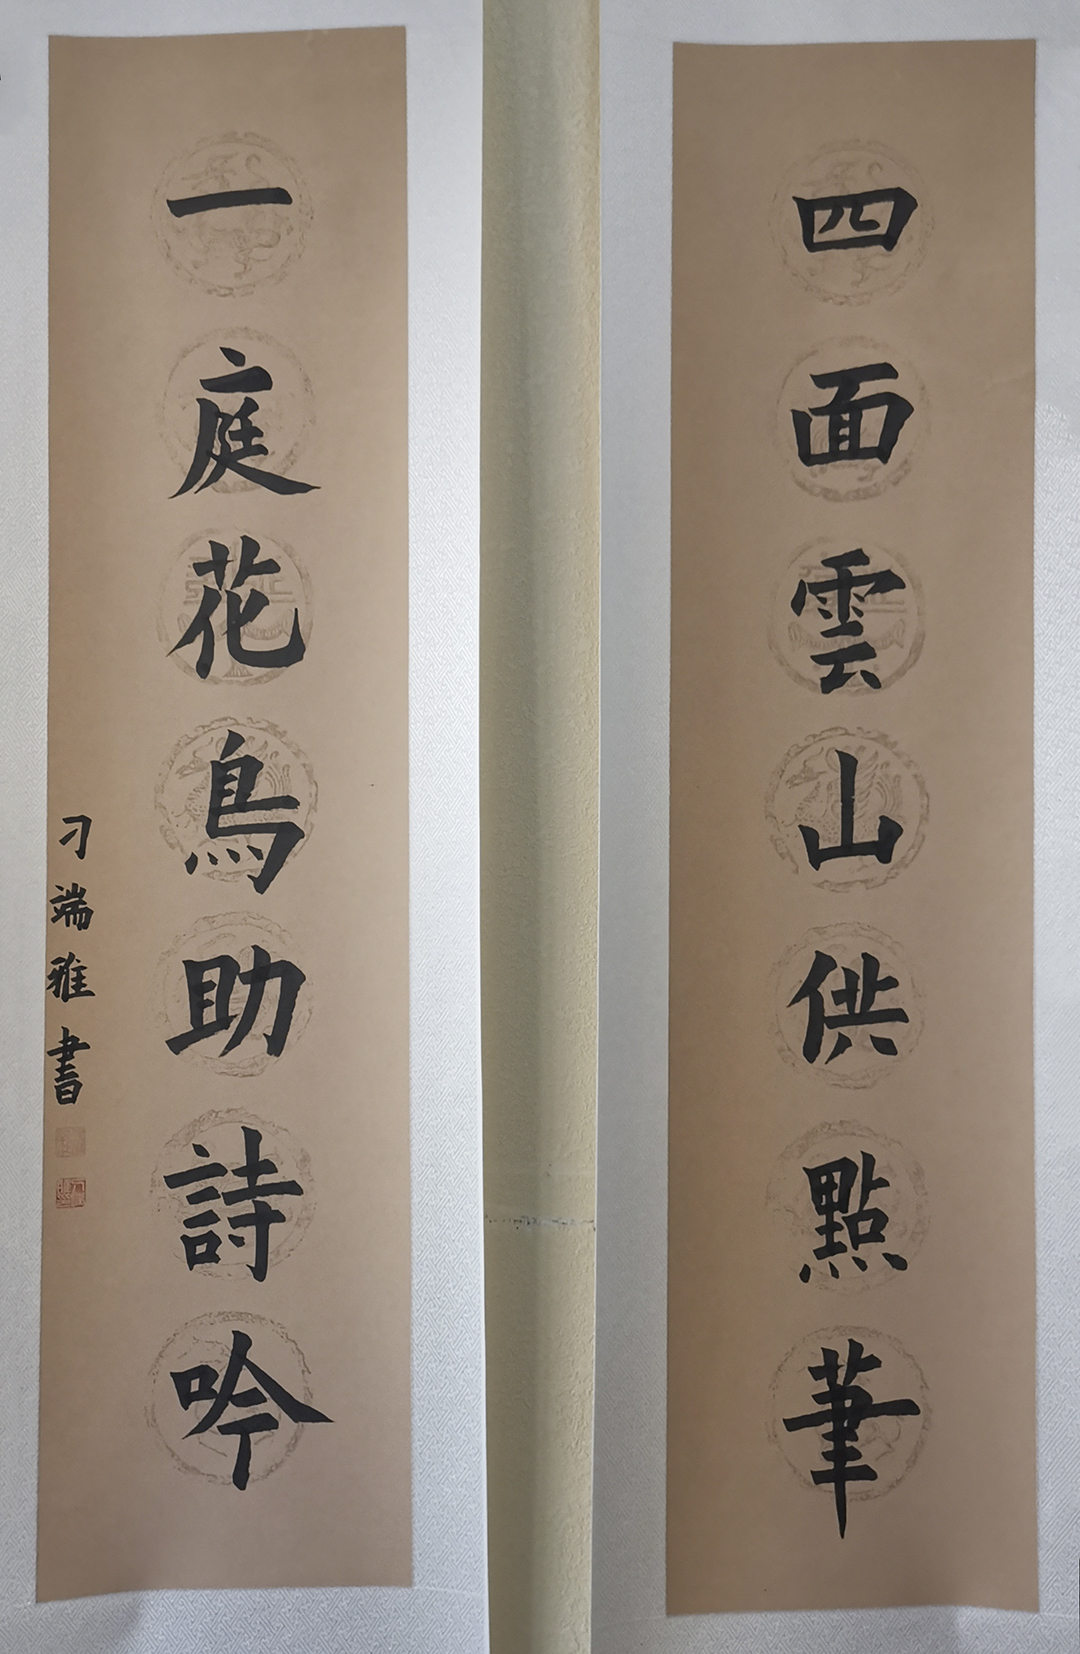 四面雲山供點筆
一庭花鳥助詩吟
刁端雅書